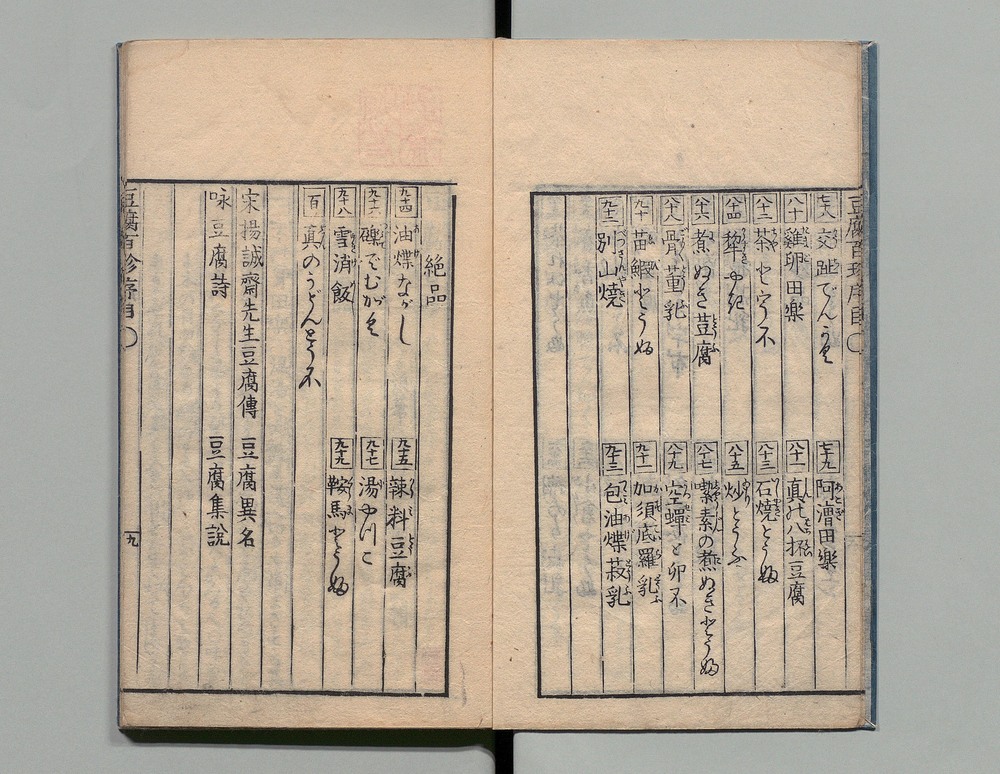 豆腐百珍序目
七十八 交趾でんがく
七十九 阿漕田楽
八十 鶏卵田楽
八十一 真の八盃豆腐
八十二 茶とうふ
八十三 石焼とうふ
八十四 犂やき
八十五 炒とうふ
八十六 煮ぬき荳腐
八十七 の煮ぬきどうふ
八十八 骨董乳
八十九 空蟬と卯不
九十 苗鰕どうふ
九十一 加須底羅乳
九十二 別山焼
九十三 包油煠菽乳
絶品
九十四 油煠ながし
九十五 辣料豆腐
九十六 礫でむがく
九十七 湯やつこ
九十八 雪消飯
九十九 鞍馬どうふ
百 真のうどんとうふ
宋楊誠齋先生豆腐傳 豆腐異名
咏豆腐詩 豆腐集説
豆腐百珍序目
九